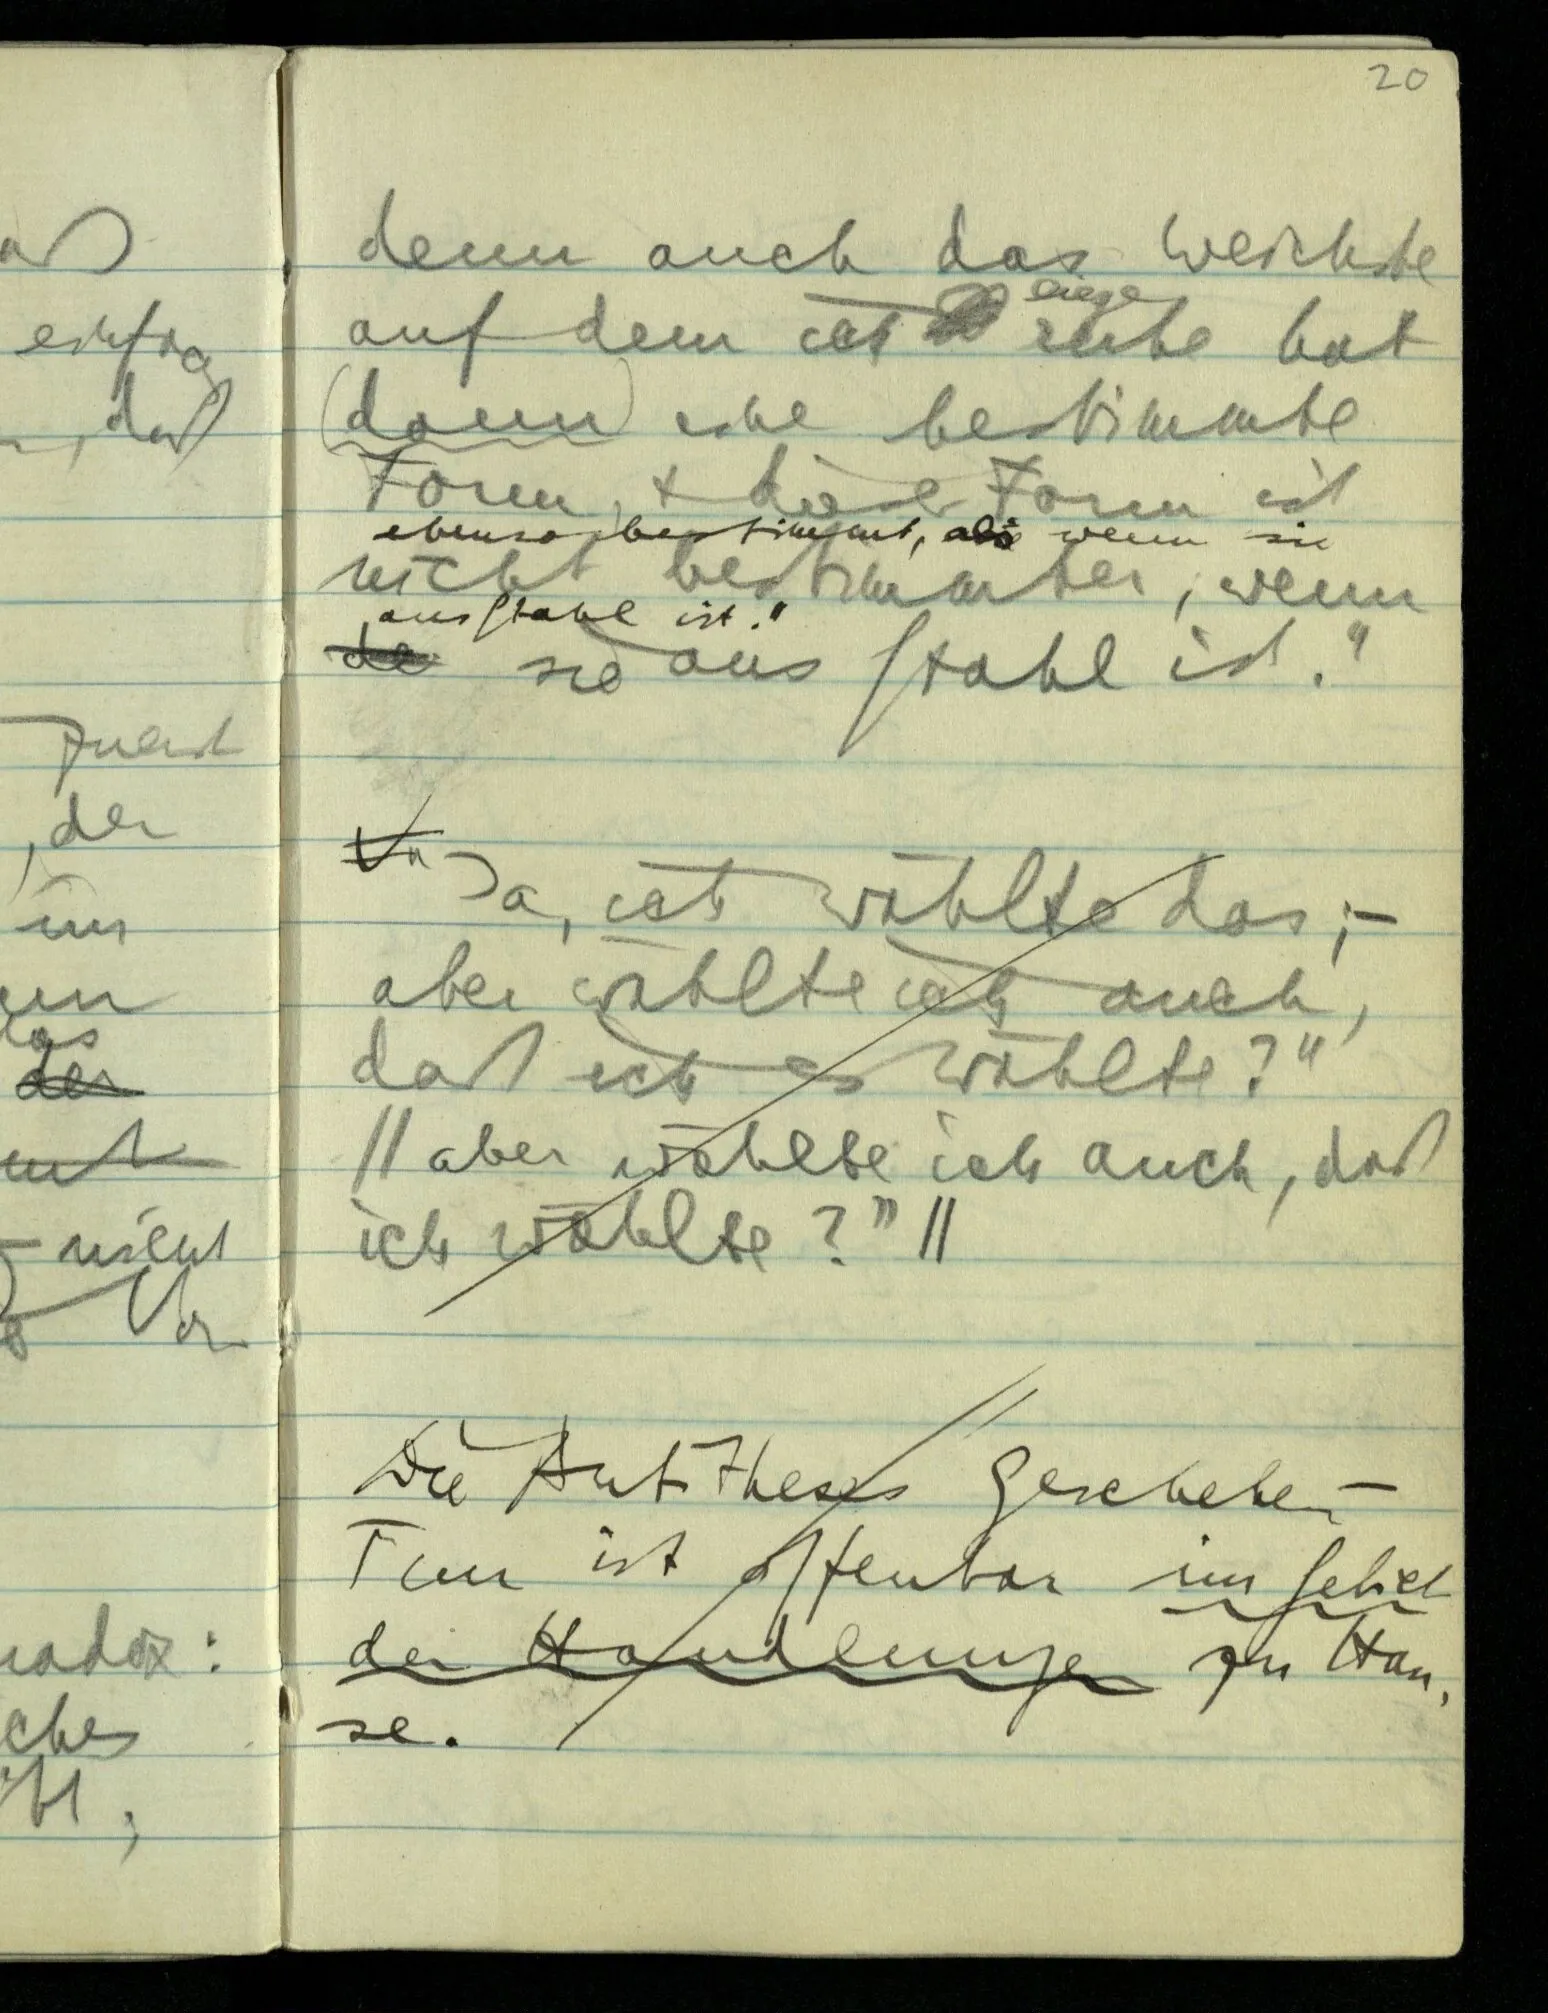 20
denn auch das Weichste
liege
auf dem ich ruhe hat
(dann) eine bestimmte
Form, + diese Form ist
ebenso bestimmt, als wenn sie
nicht bestimmter, wenn
aus Stahl ist."
de sie aus Stahl ist."
Va
Ja, ich wählte das; –
aber wählte ich auch,
daß ich es wählte?"
// aber wählte ich auch, daß
ich wählte?" //
Die Antithese Geschehen –
Tun ist offenbar im Gebiet
der Handlungen zu Hau-
se.
einfac
, daß
zuerst
, der
im
das
der
nicht
Vor
radox:
ches